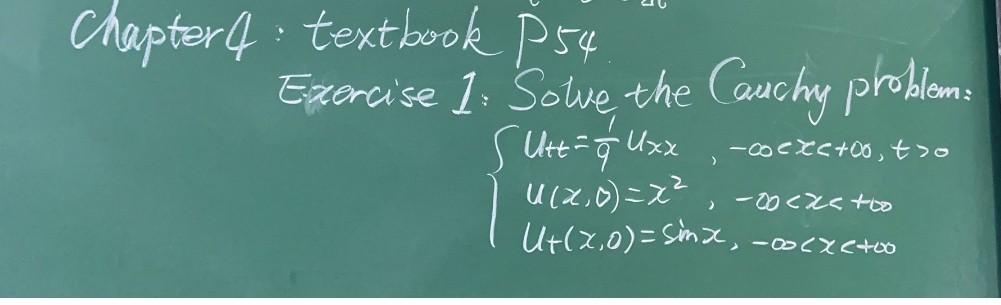 Chapter 4: textbook P54.
Exercise 1: Solve the Cauchy problem:
{ Utt = 1/9 Uxx , -∞<x<+∞, t>0
U(x,0)=x² , -∞<x<+∞
Ut(x,0)=sinx, -∞<x<+∞